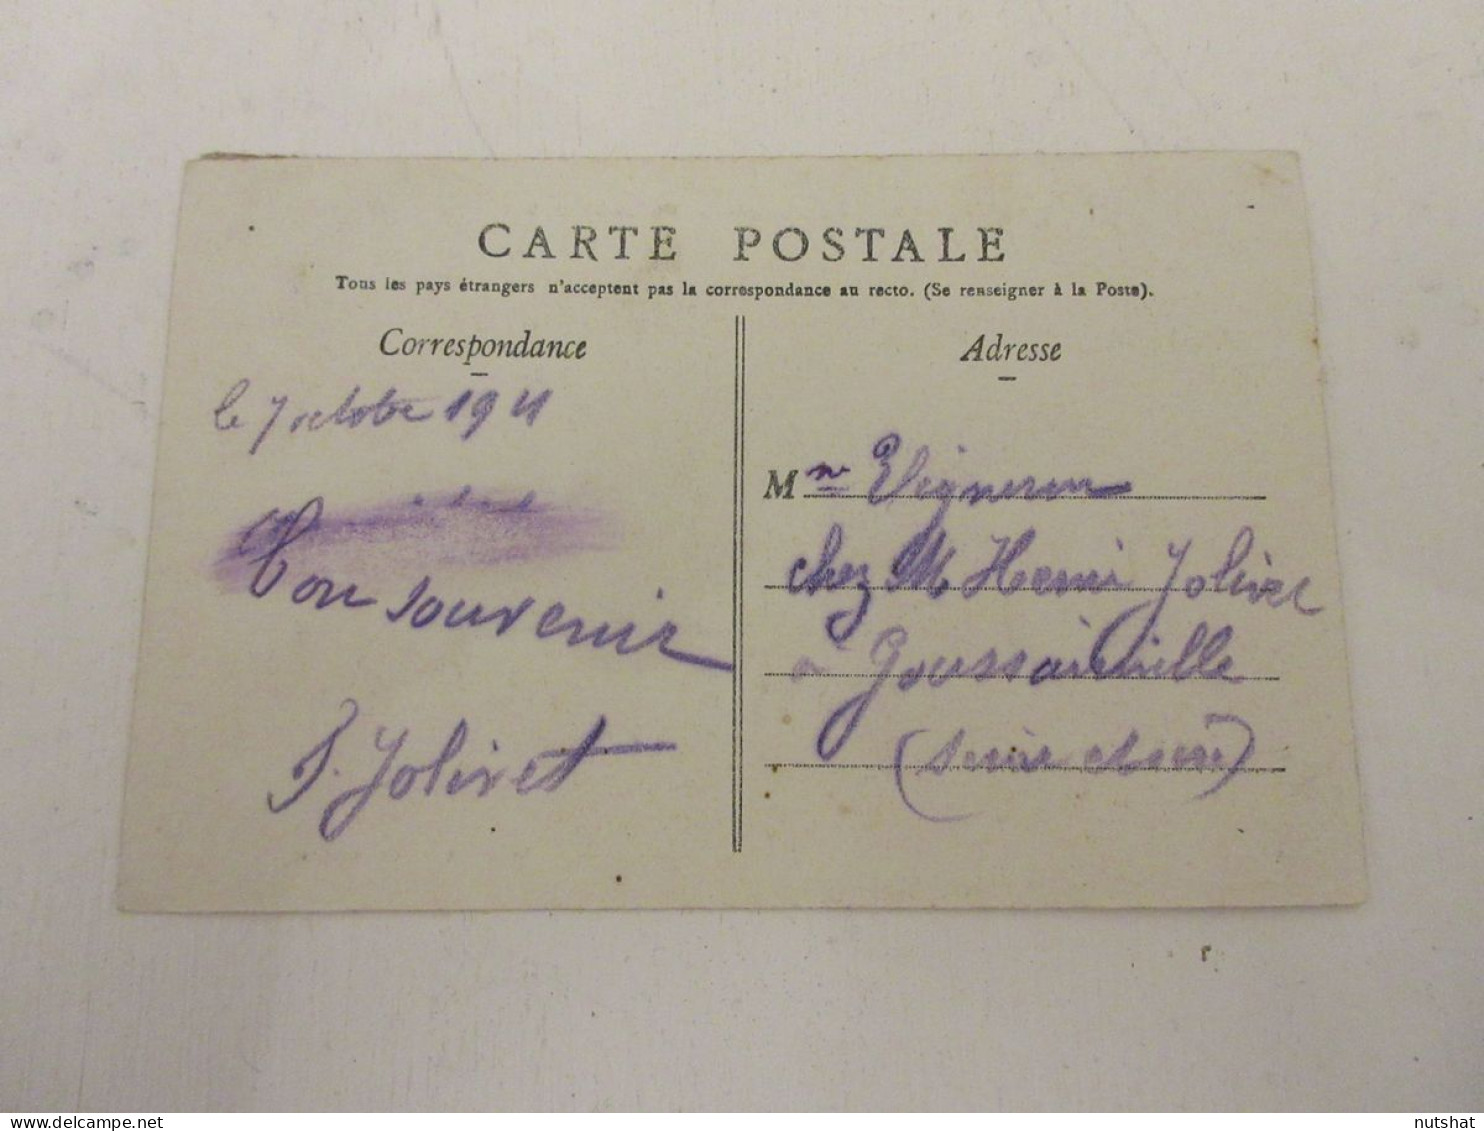 CARTE POSTALE
Tous les pays étrangers n'acceptent pas la correspondance au recto. (Se renseigner à la Poste).
Correspondance
le 7 octobre 1911
Bon souvenir
J. Jolivet
Adresse
Mme Vigneron
chez M Henri Jolivet
à Goussainville
(Seine et Oise)
delcampe.net
nutshat